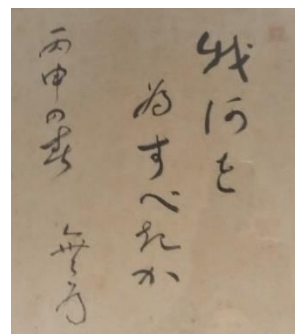 我何を
為すべきか
丙申の春 無